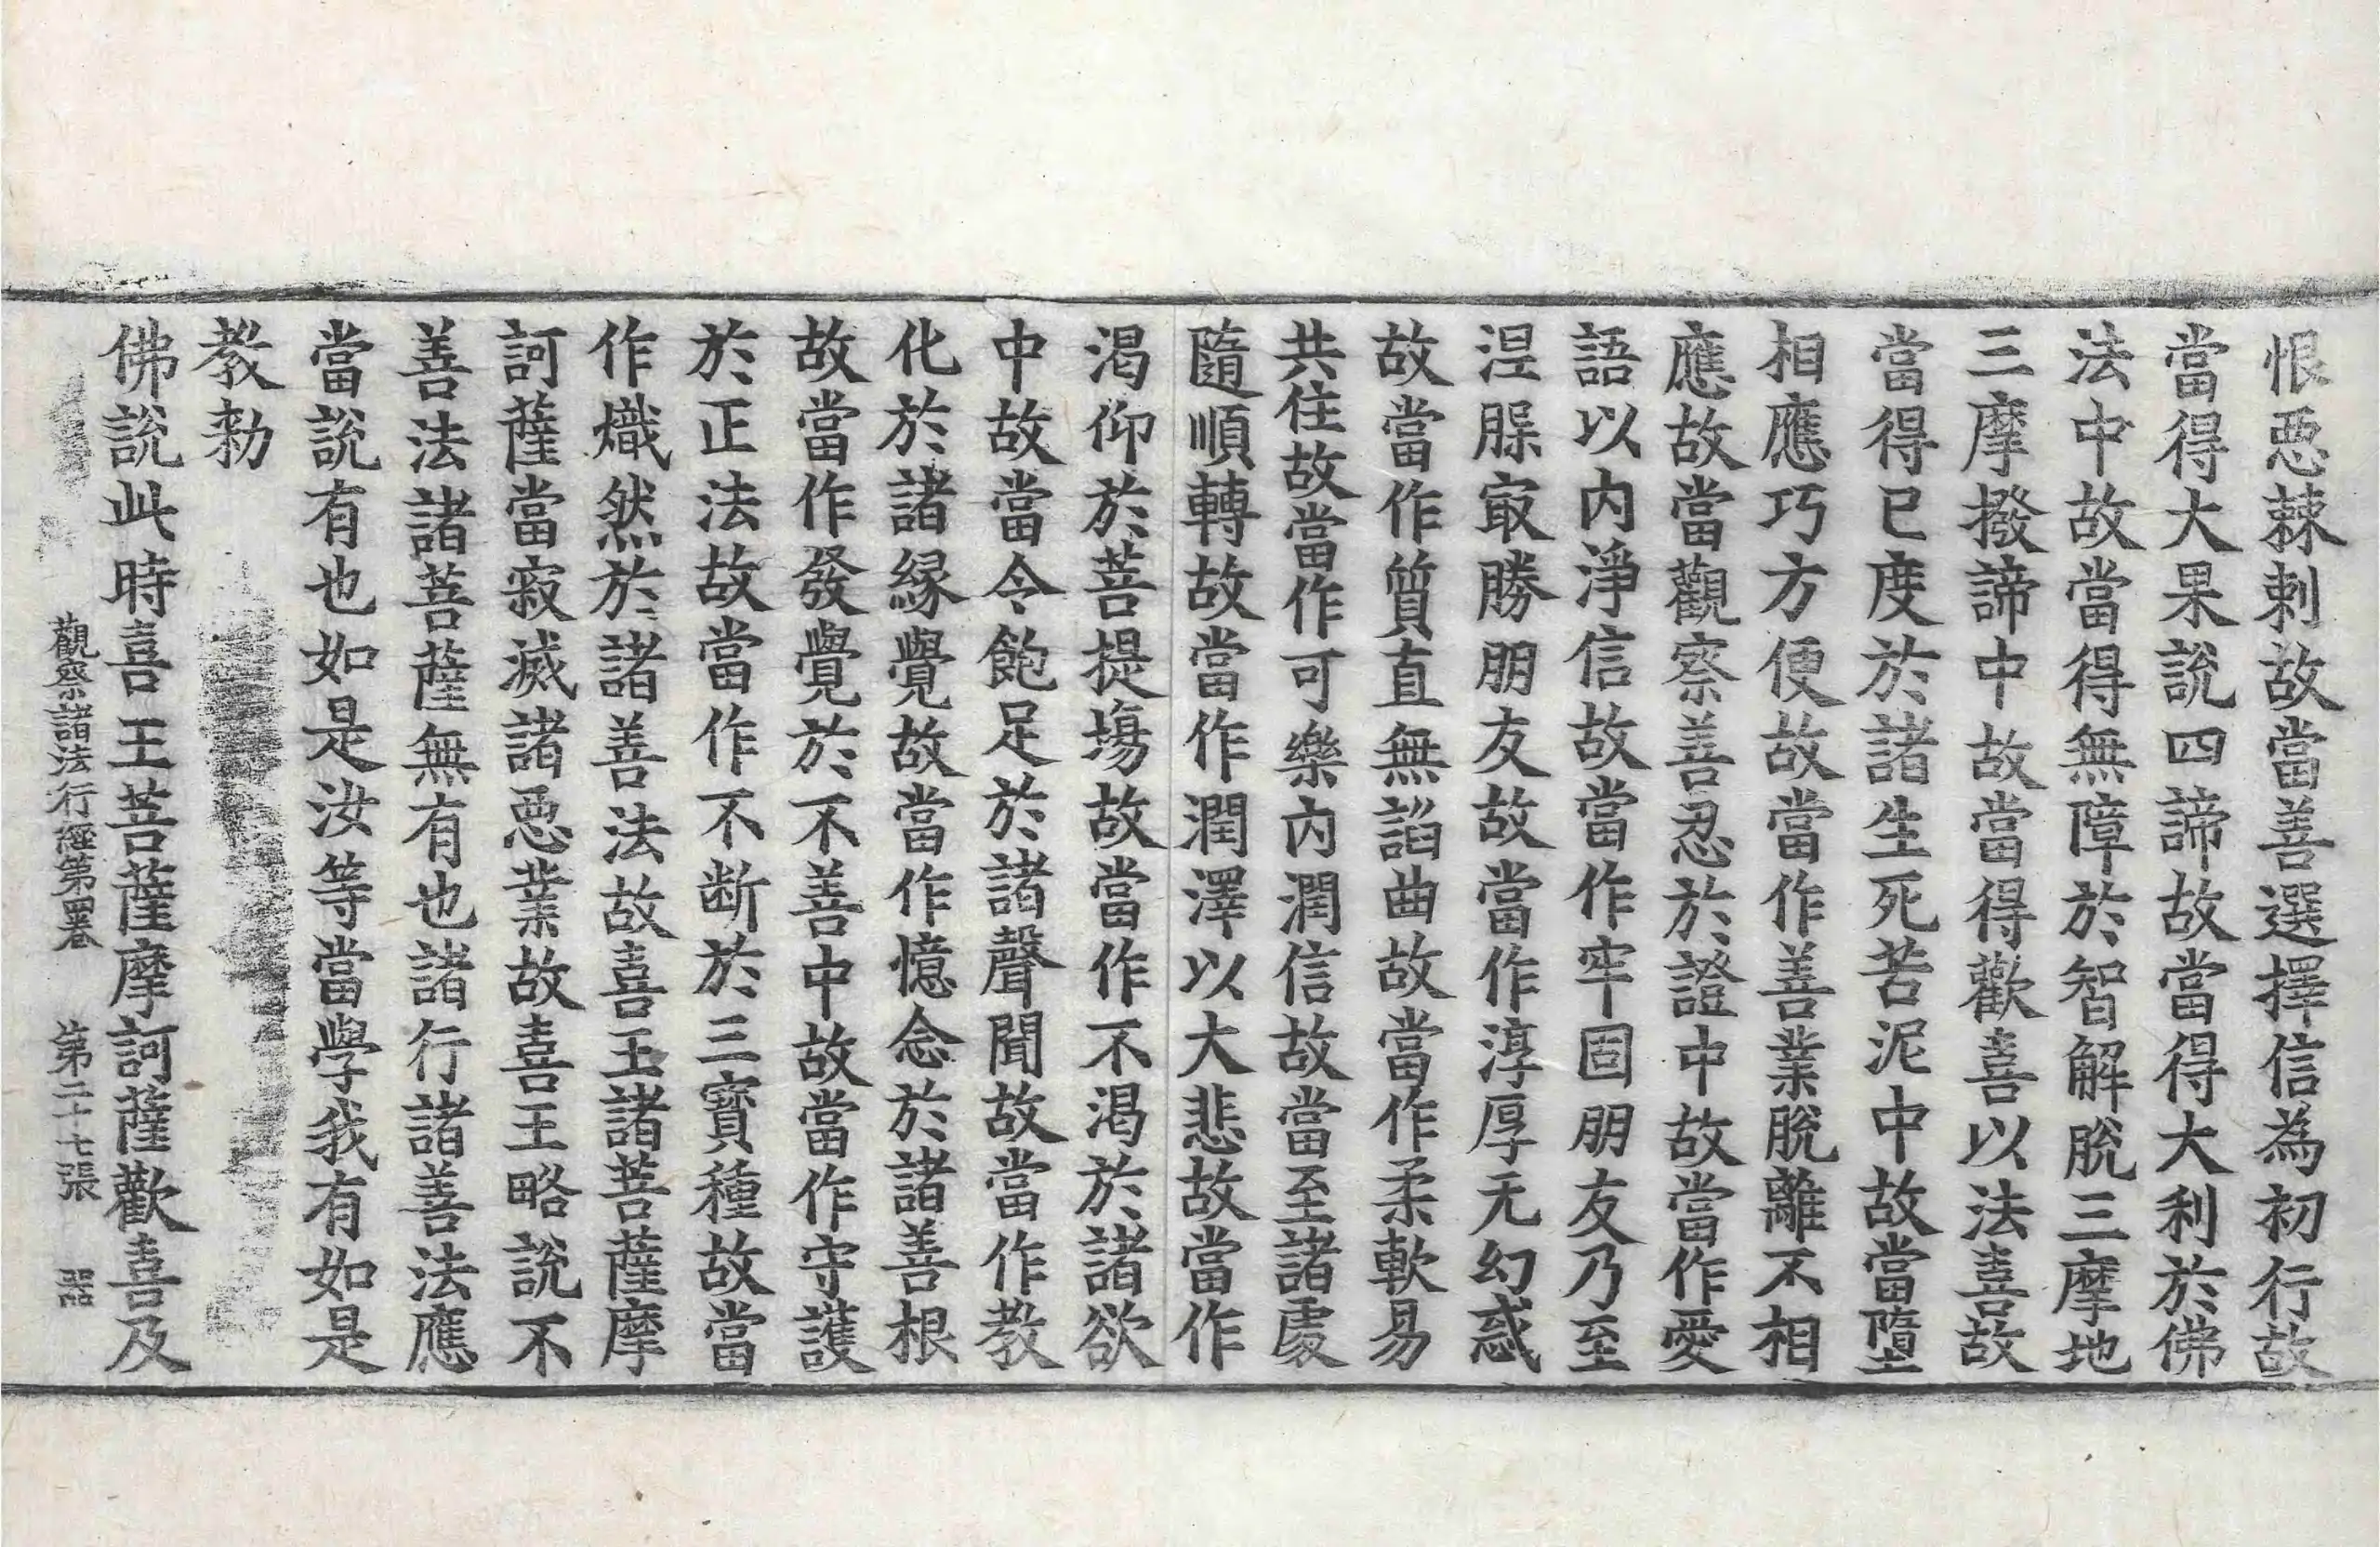 恨惡棘刺故當善選擇信為初行故
當得大果說四諦故當得大利於佛
法中故當得無障於智解脫三摩地
三摩撥諦中故當得歡喜以法喜故
當得已度於諸生死苦泥中故當墮
相應巧方便故當作善業脫離不相
應故當觀察善忍於證中故當作愛
語以內淨信故當作牢固朋友乃至
涅脲㝡勝朋友故當作淳厚无幻惑
故當作質直無諂曲故當作柔軟易
共住故當作可樂內潤信故當至諸處
隨順轉故當作潤澤以大悲故當作
渴仰於菩提場故當作不渴於諸欲
中故當令飽足於諸聲聞故當作教
化於諸緣覺故當作憶念於諸善根
故當作發覺於不善中故當作守護
於正法故當作不断於三寶種故當
作熾然於諸善法故喜王諸菩薩摩
訶薩當寂滅諸惡業故喜王略說不
善法諸菩薩無有也諸行諸善法應
當說有也如是汝等當學我有如是
教勑
佛說此時喜王菩薩摩訶薩歡喜及
觀察諸法行經第四卷 第二十七張 器